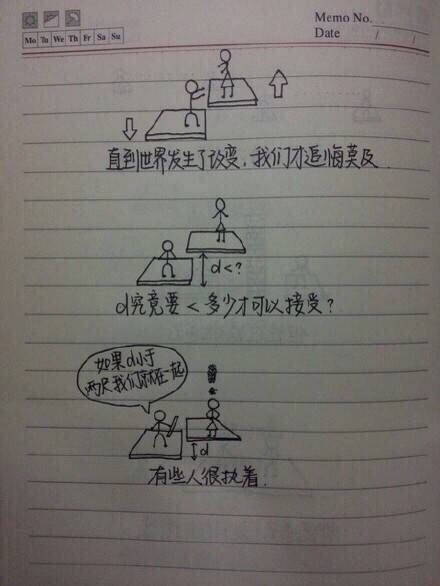 Memo No.
Date / /
Mo Tu We Th Fr Sa Su
直到世界发生了改变，我们才追悔莫及
d<?
d究竟要<多少才可以接受？
如果d小于
两尺我们就在一起
d
有些人很执着.